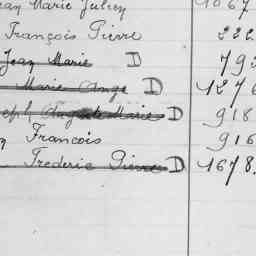 Jean Marie Julien 1067
François Pierre 222
Jean Marie D 792
Marie Ange D 1276
Auguste Marie D 918
François 916
Frederic Pierre D 1678